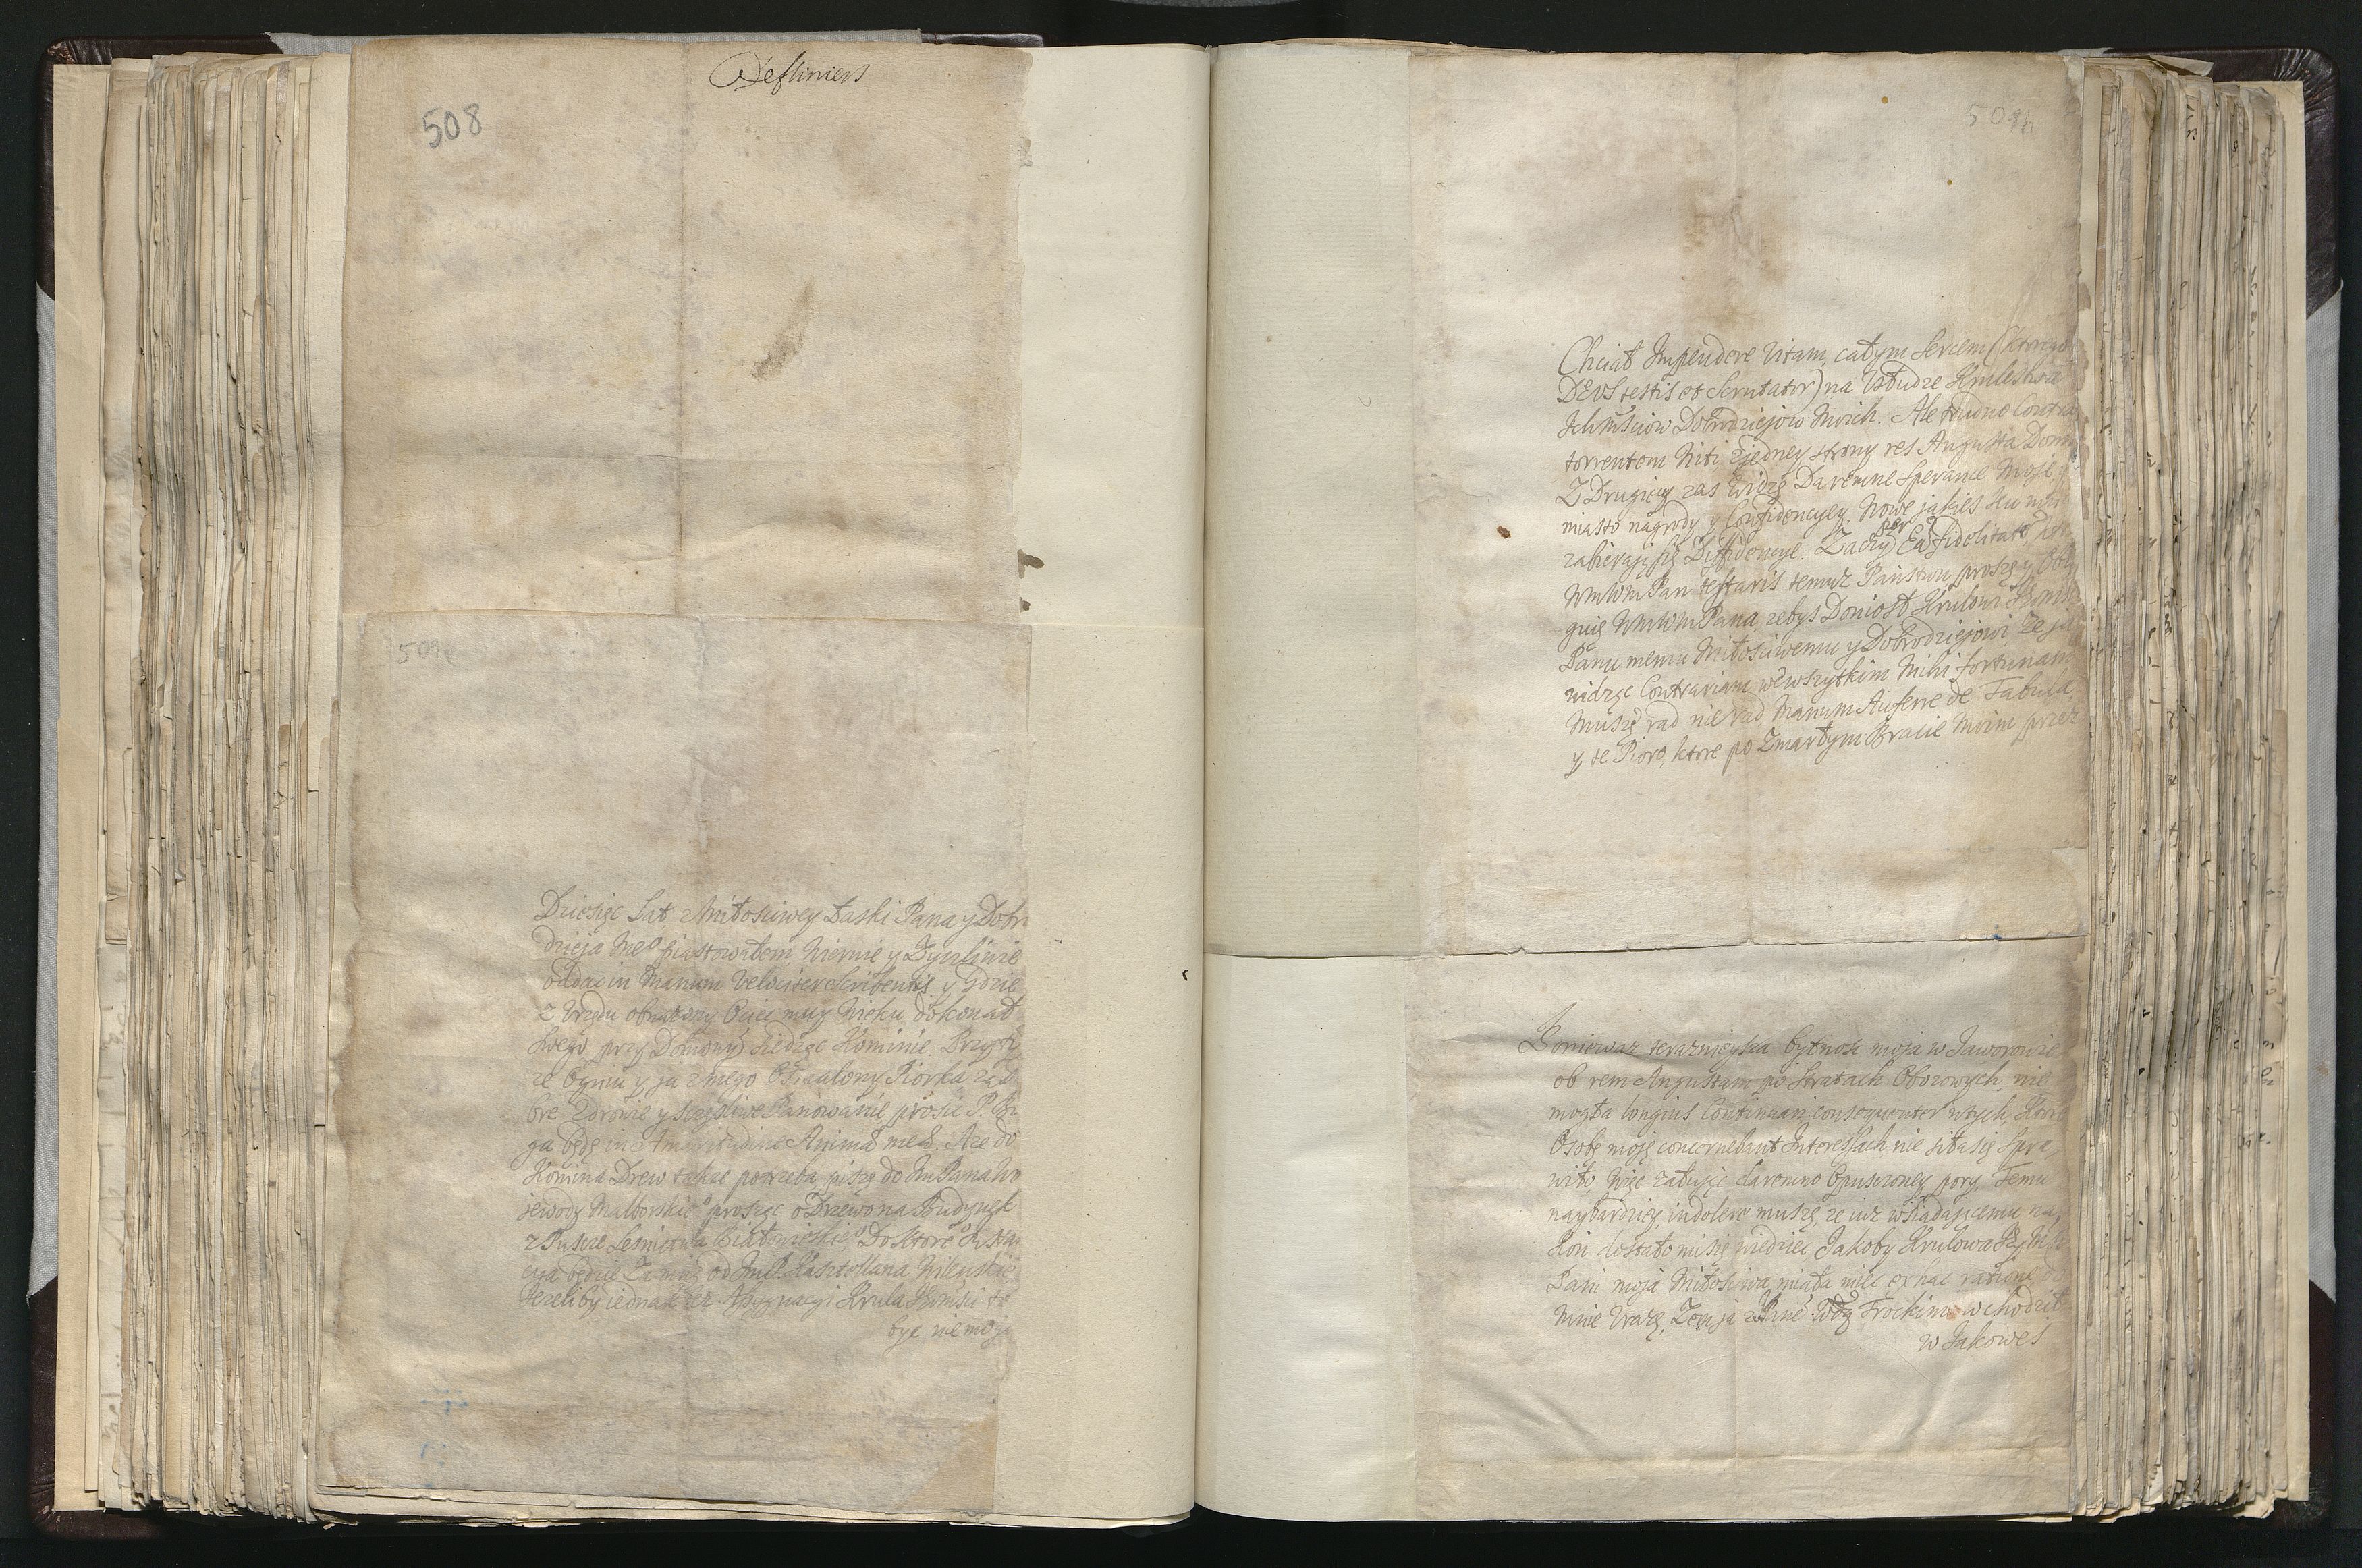 508
509
Dziesięc Lat z Miłosciwey Łaski Pana y Dobr
dzieja Mego piastowałem Wiernie y Zyczliwie
oddac in Manum Velociter Scribentis, y Gdzie
z Urzędu obnażony Ociec moy Wieku dokonał
swego przy Domowym siedząc Kominie. Przy ty
ze Ogniu y ja z mego Piorka za d
bre zdrowie y szczęsliwe Panowanie prosic P. Bo
ga będę in Amaritudine Animæ meæ. Aze do
Komina Drew takze potrzeba piszę do ImPana Wo
jewody Malborskiego prosząc o Drzewo na Budynek
z Pusze Lesnictwa Do ktore
cya będzie Za mną od ImP. Kasztellana Wilenskie
Jezeliby iednak bez Assygnacyi Krula Jmsci to
byc niemog
509b
Chciał Impendere Vitam, całym Sercem (ktorego
DEUS testis et Scrutator) na Usłudze Krulestwa
Ichmsciow Dobrodziejow Moich. Ale trudno Contra
torrentem Niti, z jedney strony res Angusta Domi
Z Drugiey zas widzę Daremne Sperance Moje y
miasto nagrody y Confidencyey, Nowe jakies ku mni
zabierają się Diffidencye. Zaczy per Eą fidelitatē
WmWmPan testaris temuz Panstwu proszę y Obli
guię WmWmPana zebys Doniosł Krulowi Jegomsci
Panu memu Miłosciwemu y Dobrodziejowi Ze ja
widząc Contrariam wewszytkim Mihi fortunam
Muszę rad nie rad Manum Auferre de Tabula,
y te Pioro, ktore po Zmarłym Bracie Moim przez
Poniewaz teraznieysza bytnosc moja w Jaworowie
ob rem Angustam po Stratach Obozowych, nie
mogła longius Continuari, consequenter w tych, ktore
Osobę moję concernebant Interessach nie siła się Spra
wiło, Więc załując daremno Opusczoney pory, Temu
naybardziey indolere muszę, ze iuz wsiadającemu na
Kon dostało mi się wiedziec Jakoby Krulowa Jey Msc
Pani moja Miłosciwa miała miec ex hac ratione do
Mnie Urazę, Zem ja z Panē Wdą Trockim wchodził
w Jakowes